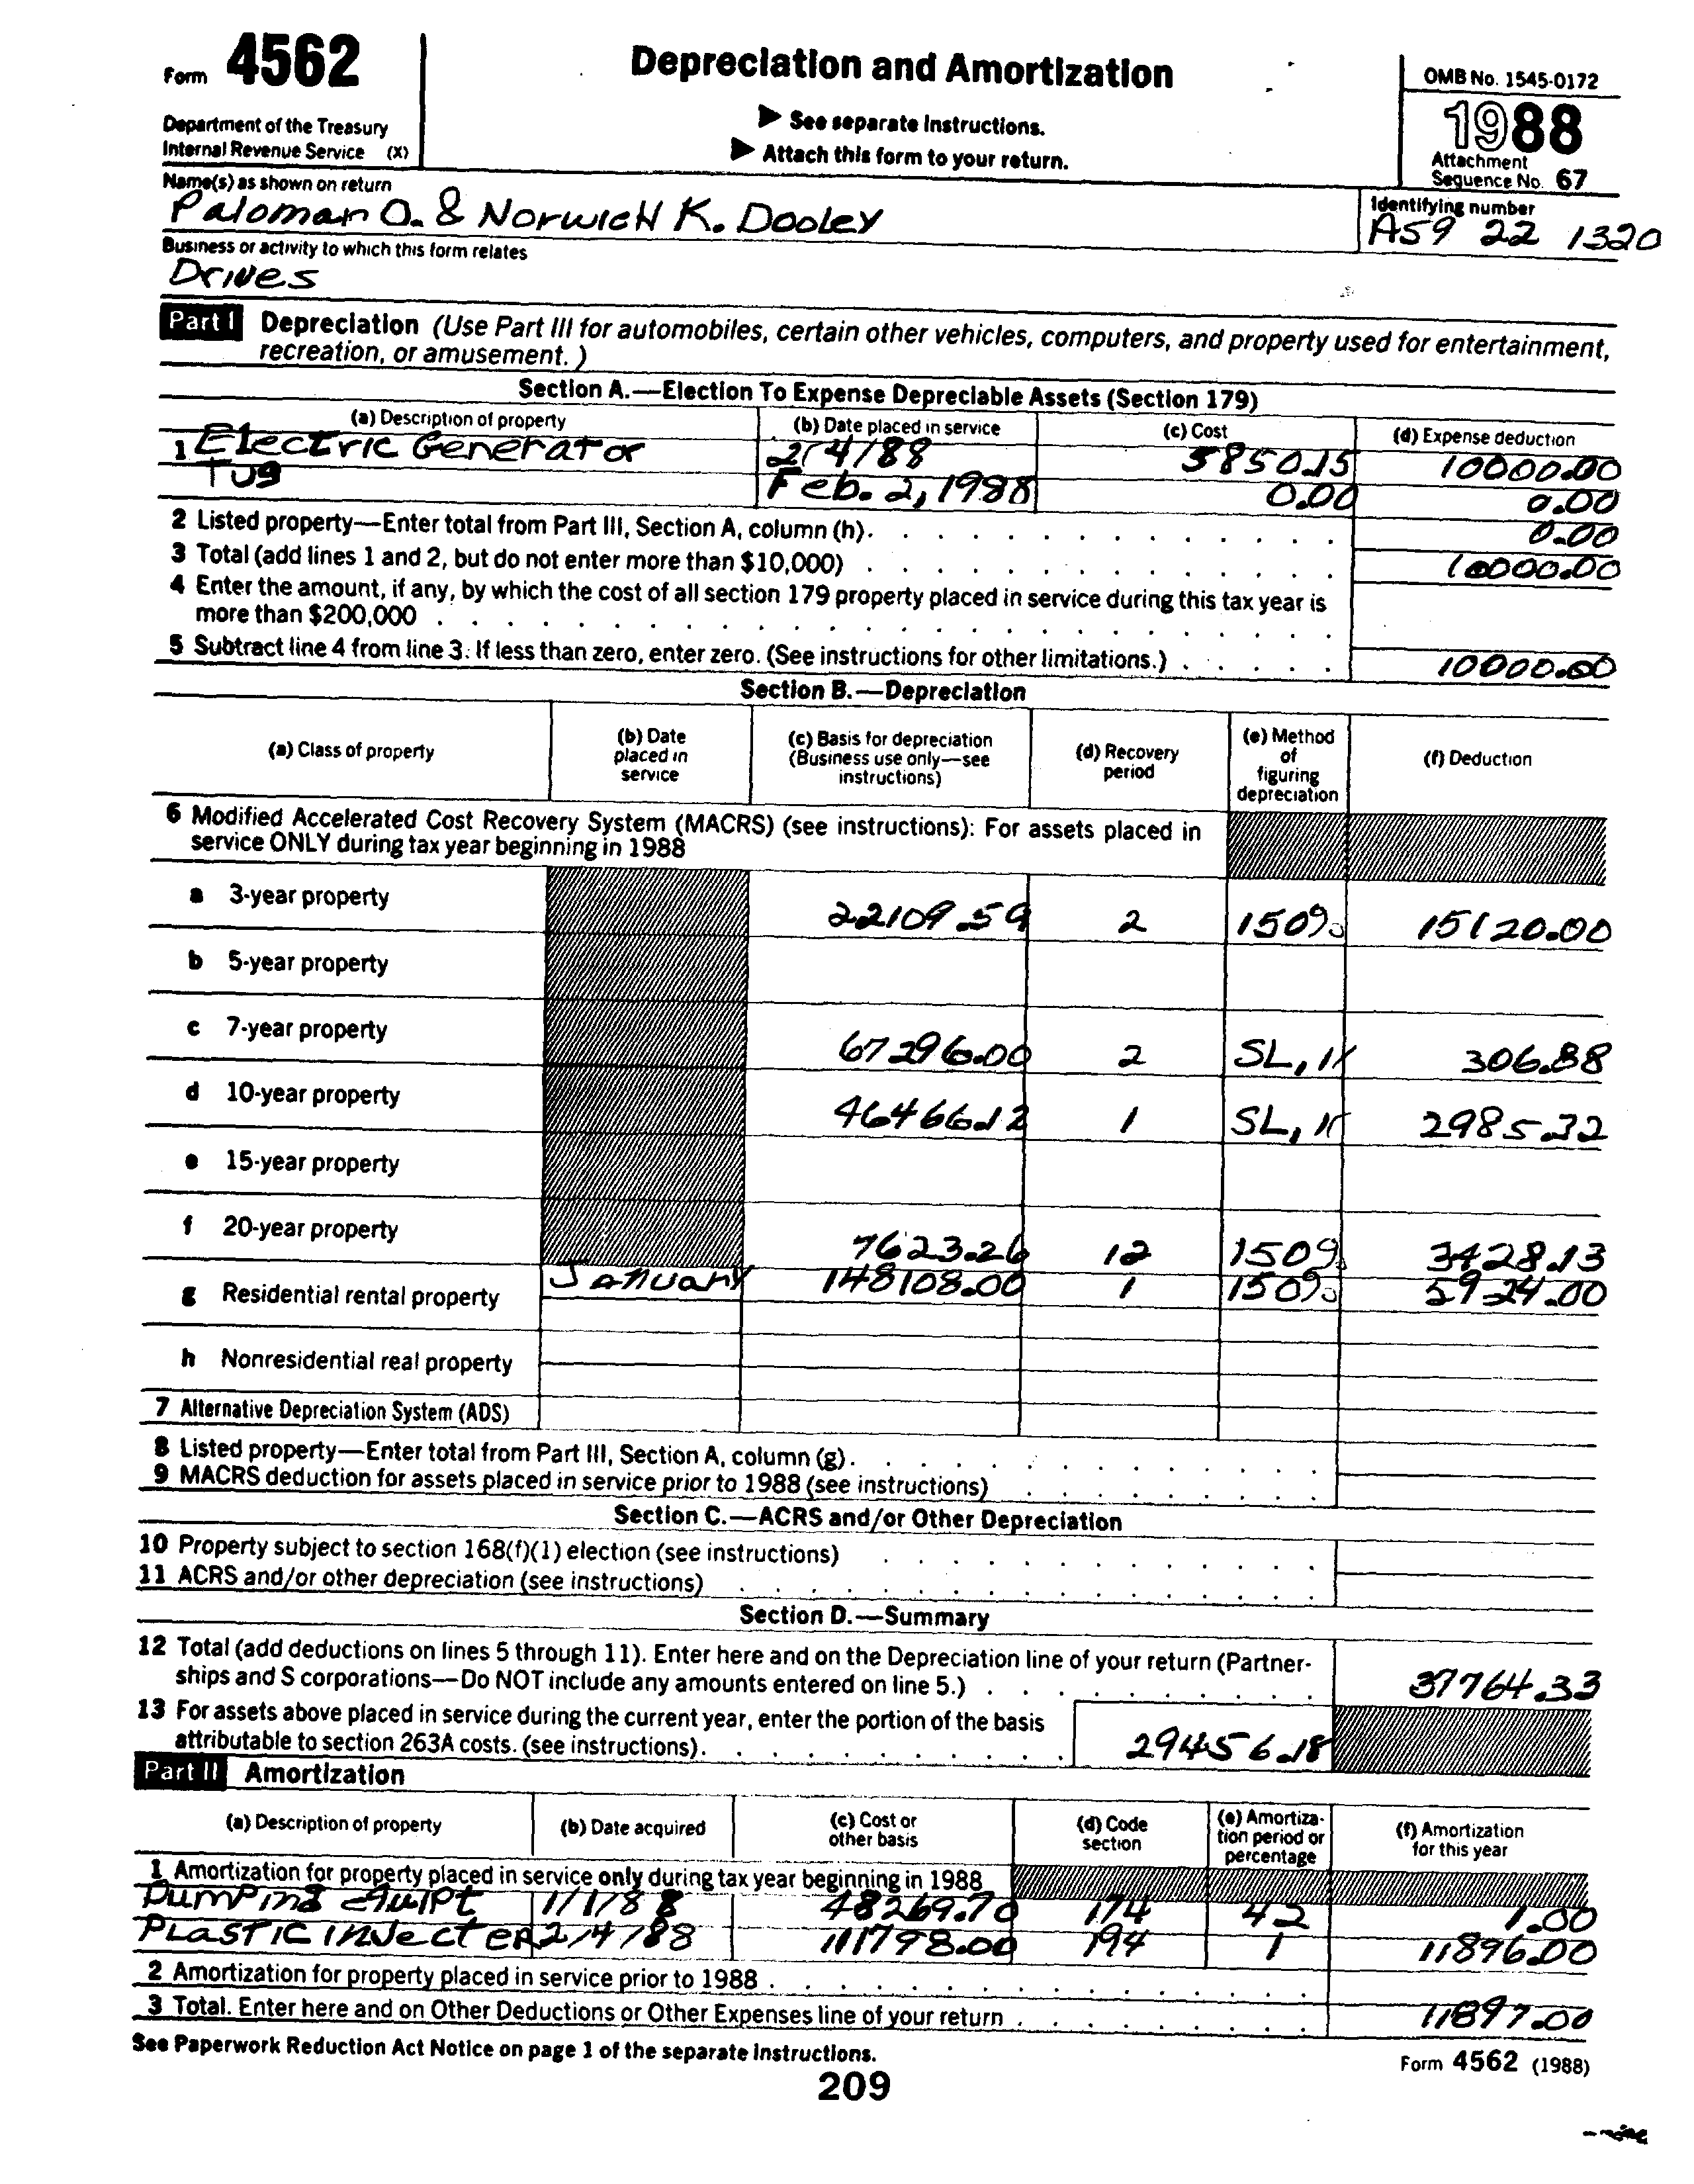 Form 4562
Department of the Treasury
Internal Revenue Service (X)
Depreciation and Amortization
▶ See separate Instructions.
▶ Attach this form to your return.
OMB No. 1545-0172
1988
Attachment
Sequence No. 67
Name(s) as shown on return
Paloman O. & Norwich K. Dooley
Identifying number
A59 22 1320
Business or activity to which this form relates
Drives
Part I Depreciation (Use Part III for automobiles, certain other vehicles, computers, and property used for entertainment,
recreation, or amusement.)
Section A.—Election To Expense Depreciable Assets (Section 179)
(a) Description of property (b) Date placed in service (c) Cost (d) Expense deduction
1 Electric Generator 2/4/88 5850.15 10000.00
Tug Feb. 2, 1988 0.00 0.00
2 Listed property—Enter total from Part III, Section A, column (h). 0.00
3 Total (add lines 1 and 2, but do not enter more than $10,000) 10000.00
4 Enter the amount, if any, by which the cost of all section 179 property placed in service during this tax year is
more than $200,000
5 Subtract line 4 from line 3. If less than zero, enter zero. (See instructions for other limitations.) 10000.00
Section B.—Depreciation
(a) Class of property (b) Date placed in service (c) Basis for depreciation (Business use only—see instructions) (d) Recovery period (e) Method of figuring depreciation (f) Deduction
6 Modified Accelerated Cost Recovery System (MACRS) (see instructions): For assets placed in
service ONLY during tax year beginning in 1988
a 3-year property 22109.59 2 150% 15120.00
b 5-year property
c 7-year property 67296.00 2 SL, 1/ 306.88
d 10-year property 46466.12 1 SL, 1/ 2985.32
e 15-year property
f 20-year property 7623.26 12 150% 3428.13
g Residential rental property January 148108.00 1 150% 5924.00
h Nonresidential real property
7 Alternative Depreciation System (ADS)
8 Listed property—Enter total from Part III, Section A, column (g).
9 MACRS deduction for assets placed in service prior to 1988 (see instructions)
Section C.—ACRS and/or Other Depreciation
10 Property subject to section 168(f)(1) election (see instructions)
11 ACRS and/or other depreciation (see instructions)
Section D.—Summary
12 Total (add deductions on lines 5 through 11). Enter here and on the Depreciation line of your return (Partner-
ships and S corporations—Do NOT include any amounts entered on line 5.) 37764.33
13 For assets above placed in service during the current year, enter the portion of the basis
attributable to section 263A costs. (see instructions). 29456.18
Part II Amortization
(a) Description of property (b) Date acquired (c) Cost or other basis (d) Code section (e) Amortiza-tion period or percentage (f) Amortization for this year
1 Amortization for property placed in service only during tax year beginning in 1988
Dumping Equipt 1/1/88 48269.70 174 42 1.00
Plastic Injecter 2/4/88 111798.00 194 1 11896.00
2 Amortization for property placed in service prior to 1988
3 Total. Enter here and on Other Deductions or Other Expenses line of your return 11897.00
See Paperwork Reduction Act Notice on page 1 of the separate instructions.
Form 4562 (1988)
209